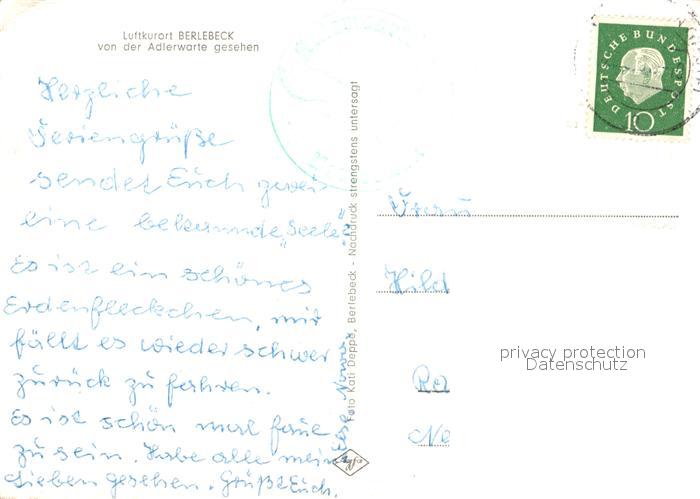 Luftkurort BERLEBECK
von der Adlerwarte gesehen
Herzliche
Feriengrüße
sendet Euch
eine bekannte "Seele"
Es ist ein schönes
Erdenfleckchen, mir
fällt es wieder schwer
zurück zu fahren.
Es ist schön mal faul
zu sein. Habe alle meine
Lieben gesehen. Grüßt Euch.
Foto Kati Deppe, Berlebeck - Nachdruck strengstens untersagt
Agfa
DEUTSCHE BUNDESPOST
10
Frau
Hild
privacy protection
Datenschutz
Ro
Ne